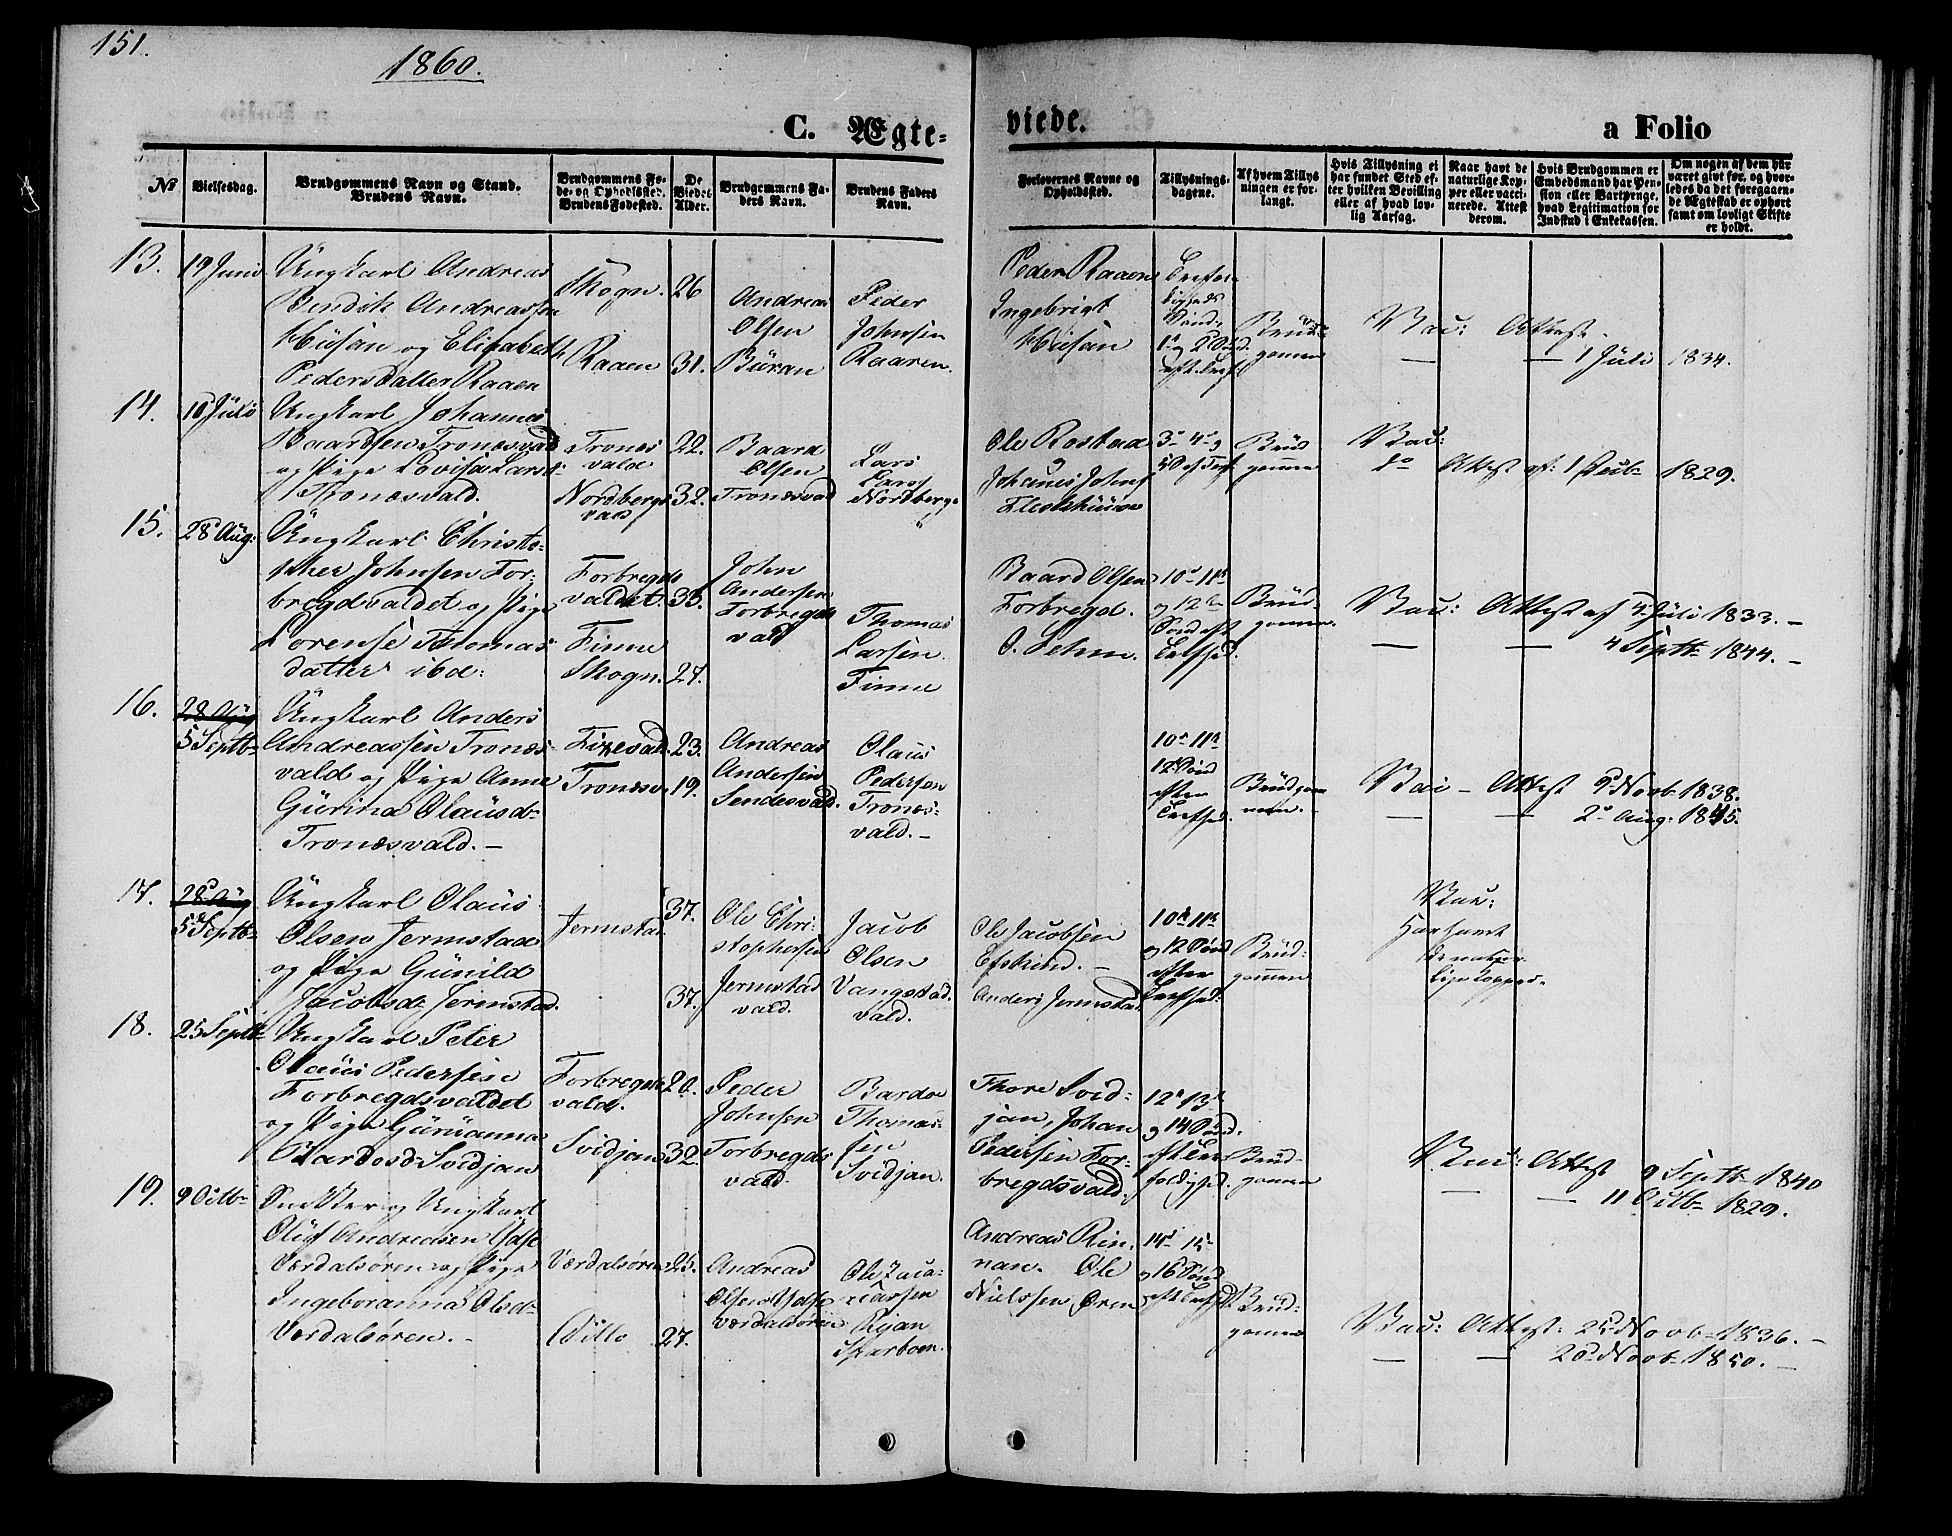 151.
1860.
C. Ægte=
viede.
a Folio
No
Vielsesdag.
Brudgommens Navn og Stand.
Brudens Navn.
Brudgommens Fø-
de- og Opholdssted.
Brudens Fødested.
De
Viedes
Alder.
Brudgommens Fa-
ders Navn.
Brudens Faders
Navn.
Forlovernes Navne og
Opholdssted.
Tillysnings-
dagene.
Af hvem Tillys
ningen er for-
langt.
Hvis Tillysning ei
har fundet Sted ef-
ter hvilken Bevilling
eller af hvad lov-
lig Aarsag.
Naar havt de
naturlige Kop-
per eller vacci-
nerede. Attest
derom.
Hvis Brudgommen er
Embedsmand har Pen-
sion eller Vartpenge,
hvad Legitimation for
Indskud i Enkekassen.
Om nogen af dem har
været givt før, og hvor-
ledes da det foregaaen-
de Ægteskab er ophørt
samt om lovligt Skifte
er holdt.
13.
19 Juni
Ungkarl Andreas
Bendik Andreassen
Hüsan og Elisabeth
Pedersdatter Raaen
Skogn.
Raaen
26
31.
Andreas
Olsen
Büran
Peder
Johnsen
Raaren.
Peder Raaen
Ingebrigt
Hüsan
Brüd-
gomen
Vac: Attest
— — 1 Juli 1834.
14.
10 Jüli
Ungkarl Johannes
Baardsen Tronesvald
og Pige Lovisa Larsd:
Tronæsvald.
Trones
vald
Nordbergs
vald
22.
32.
Baard
Olsen
Tronæsvald
Lars
Lars
Nordbergs
Ole Rostad
Johanis Johns
3die 4de og
5 S. ef. Tref.
Brüd
gomen
Vac:
do Attest af: 1 Feub 1829.
15.
28 Aug:
Ungkarl Christo-
pher Johnsen For-
bregdsvaldet og Pige
Lorense Thomas
datter ibd:
Forbregds
valdet.
Finne
Skogn.
33.
27.
John
Andersen
Forbregds
vald
Thomas
Larsen
Finne
Baard Olsen
Forbregd.
O. Sehm.
10de 11te
og 12te
Sønd eft
Trefhed.
Brüd-
gomen.
Vac: Attest af 4 Juli 1833. –
— — 4 Septb 1844. –
16.
28 Aug
5 Septb
Ungkarl Anders
Andreassen Tronæs-
vald og Pige Anne
Gürina Olaüsd=
Tronæsvald. –
Tronæs.
23.
19.
Andreas
Andersen
Sendesvald.
Olaüs
Pedersen
Trones-
vald. –
10de 11te
12 Sønd
efter
Trefhed.
Brüdgom
men.
Vac – Attest 9 Novb 1838.
— — 2 Aug: 1845.
17.
28 Aug
5 Septb
Ungkarl Olaus
Olsen Jermstad
og Pige Günild
Jacobsd: Jermstad.
Jermstad
37.
37.
Ole Chri-
stophersen
Jermstad
vald.
Jacob
Olsen
Vangstad
vald.
Ole Jacobsen
Efskind. –
Anders Jermstad.
10de 11te
og 12 Sønd
efter
Trefhed.
Brüd-
gomen
Vac:
Har havt
de natur-
lige Kopper.
18.
25 Septb
Ungkarl Peter
Olaus Pedersen
Forbregdsvaldet
og Pige Gurianna
Bardosd: Svidjan
Forbregds
vald.
Svidjan
20.
32.
Peder
Johnsen
Forbregds
vald.
Bardo
Thomas-
sen
Svidjan.
Thore Svid-
jan, Johan
Pedersen For-
bregdsvald.
12te 13de
og 14 Sønd.
eft Tre
foldighed.
Brüd-
gomen
Vac: Attest 9 Septb 1840
— — 11 Octb 1829.
19.
9 Octb
Snedker og Ungkarl
Oluf Andreasen Ydse
Værdalsøren og Pige
Ingeboranna Olsd=
Værdalsøren. –
Værdalsøren
Ditto
25.
27.
Andreas
Olsen Ydse
Værdalsøren
Ole Zaca-
riassen
Rejan
Sparboen.
Andreas Rin-
nan. Ole
Nielssen Øren
14de 15de
og 16 Sønd
eft Trefhed.
Brüd-
gomen
Vac: Attest: 25 Novb 1836. –
— — 20 Novb 1850. –